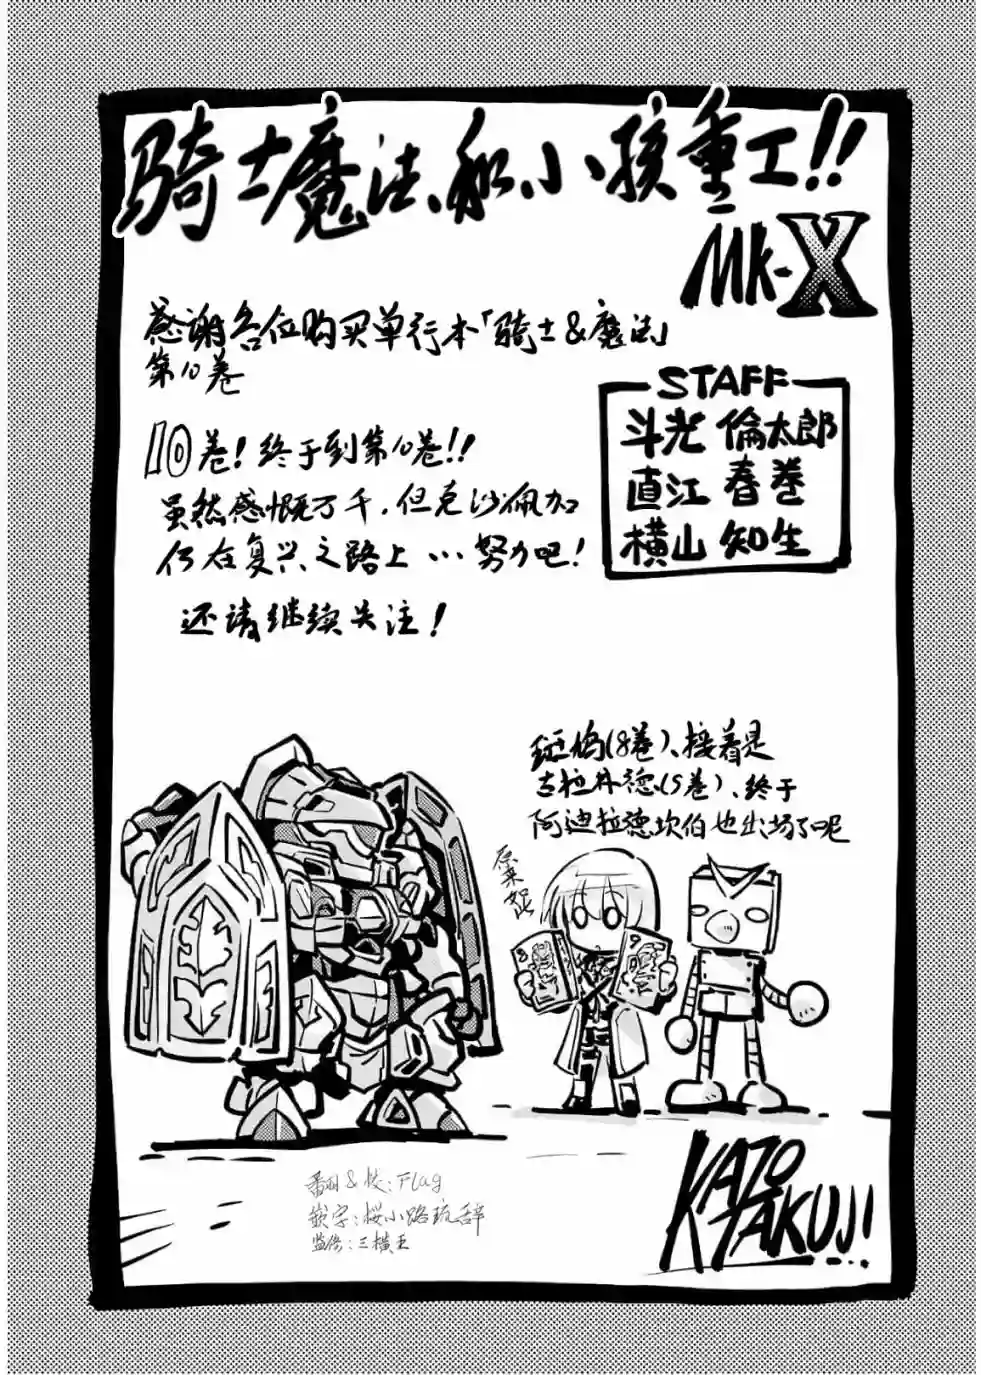 骑士魔法和小孩重工!!
Mk-X
感谢各位购买单行本「骑士&魔法」
第10卷
STAFF
斗光 倫太郎
直江 春巻
横山 知生
10卷!终于到第10卷!!
虽然感慨万千,但克沙佩加
仍在复兴之路上…努力吧!
还请继续关注!
斑鸠(8卷)、接着是
古拉林德(5卷)、终于
阿迪拉德坎伯也出场了呢
原来如此
翻&校:Flag
嵌字:桜小路琉辞
监修:三横王
KATO TAKUJI